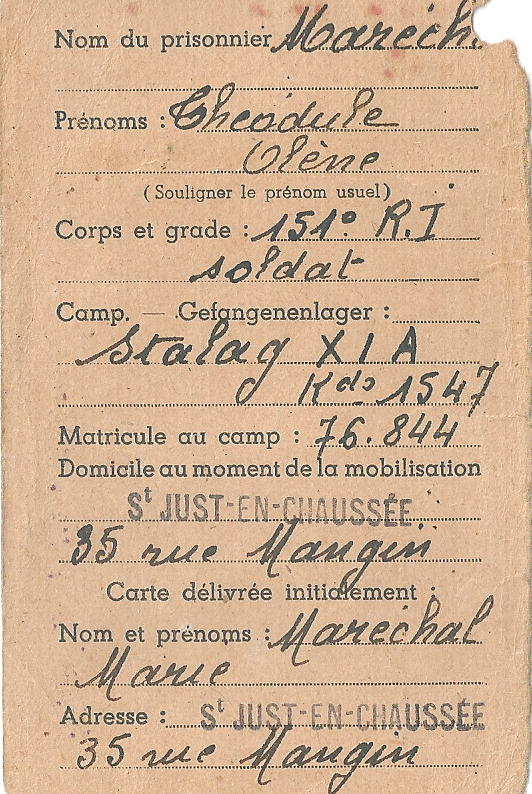 Nom du prisonnier Maréch
Prénoms : Théodule
Olène
(Souligner le prénom usuel)
Corps et grade : 151º R.I
soldat
Camp. — Gefangenenlager :
Stalag XI A
Kdo 1547
Matricule au camp : 76.844
Domicile au moment de la mobilisation
St JUST-EN-CHAUSSÉE
35 rue Mangin
Carte délivrée initialement :
Nom et prénoms : Maréchal
Marie
Adresse : St JUST-EN-CHAUSSÉE
35 rue Mangin